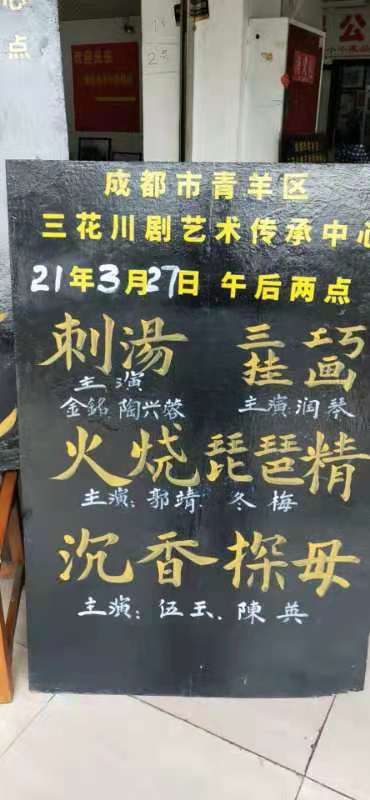 心
点
欢迎光临
公
成都市青羊区
三花川剧艺术传承中心
21年3月27日 午后两点
刺湯 三巧挂画
主演 主演:润琴
金銘 陶兴蓉
火烧琵琶精
主演:郭靖.冬梅
沉香探母
主演:伍玉、陳英